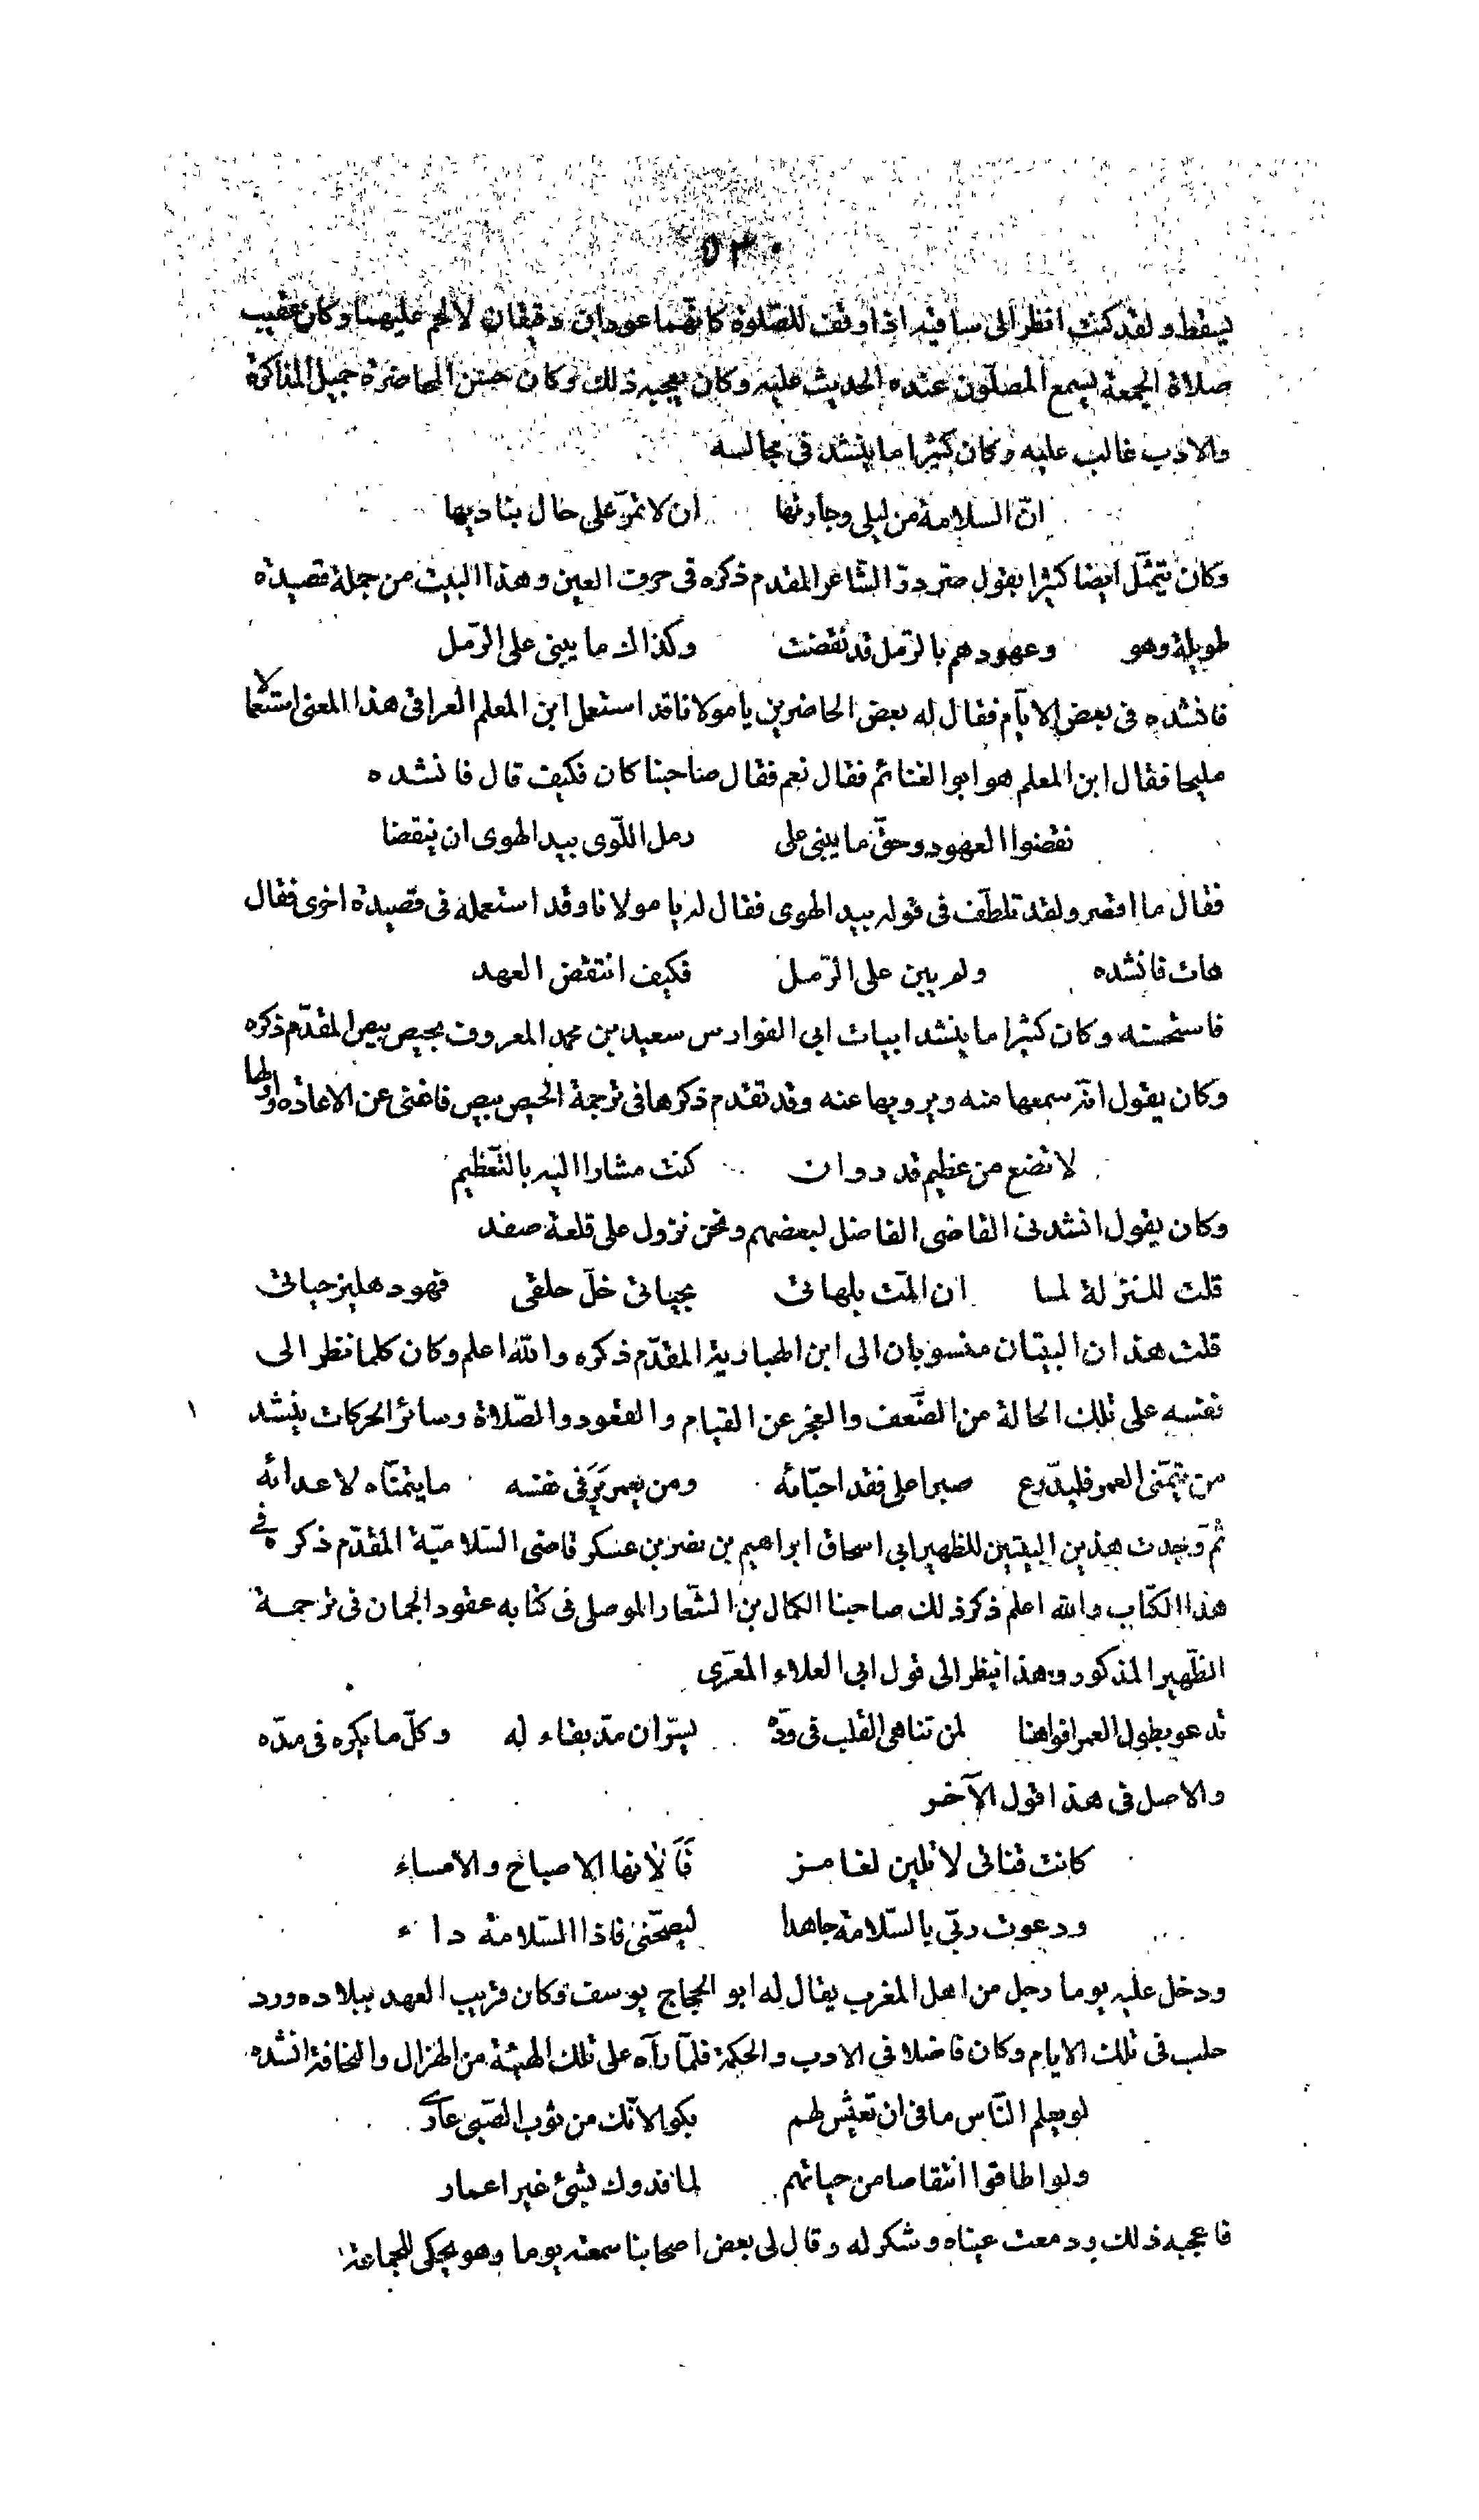 ٥٣٠
يسقط ولقد كنت انظر الى ساقيه اذا وقف للصّلوة كانّهما عودان دقيقان لا لحم عليهما وكان عقيب
صلاة الجمعة يسمع المصلّون عنده الحديث عليه وكان يعجبه ذلك وكان حسن المحاضرة جميل المذاكرة
والادب غالب عليه وكان كثيرا ما ينشد فى مجالسه
انّ السلامة من ليلى وجارتها ان لا تمرّ على حال بناديها
وكان يتمثّل ايضا كثيرا بقول صرّ درّ الشّاعر المقدم ذكره فى حرف العين وهذا البيت من جملة قصيدة
طويلة وهو وعهودهم بالرّمل قد نقضت وكذاك ما يبنى على الرّمل
فانشده فى بعض الايّام فقال له بعض الحاضرين يا مولانا قد استعمل ابن المعلم العراقى هذا المعنى استعمالا
مليحا فقال ابن المعلم هو ابو الغنائم فقال نعم فقال صاحبنا كان فكيف قال فانشده
نقضوا العهود وحقّ ما يبنى على رمل اللّوى بيد الهوى ان ينقضا
فقال ما اقصر ولقد تلطّف فى قوله بيد الهوى فقال له يا مولانا وقد استعمله فى قصيدة اخرى فقال
هات فانشده ولم يبن على الرّمل فكيف انتقض العهد
فاستحسنه وكان كثيرا ما ينشد ابيات ابى الفوارس سعيد بن محمد المعروف بحيص بيص المقدّم ذكره
وكان يقول انّه سمعها منه ويرويها عنه وقد تقدم ذكرها فى ترجمة الحيص بيص فاغنى عن الاعادة واوّلها
لا تضع من عظيم قدر وان كنت مشارا اليه بالتّعظيم
وكان يقول انشدنى القاضى الفاضل لبعضهم ونحن نزول على قلعة صفد
قلت للنزلة لما ان المّت بلهاتى بحياتى خلّ حلقى فهو دهليز حياتى
قلت هذان البيتان منسوبان الى ابن الهبارية المقدّم ذكره والله اعلم وكان كلما نظر الى
نفسه على تلك الحالة من الضّعف والعجز عن القيام والقعود والصّلاة وسائر الحركات ينشد
من يتمّنى العمر فليدّرع صبرا على فقد احبّائه ومن يعمر يَرَ فى نفسه ما يتمنّاه لاعدائه
ثمّ وجدت هذين البيتين للظهير ابى اسحاق ابراهيم بن نصر بن عسكر قاضى السّلاميّة المقدّم ذكره فى
هذا الكتاب والله اعلم ذكر ذلك صاحبنا الكمال بن الشّعار الموصلى فى كتابه عقود الجمان فى ترجمة
الظّهير المذكور وهذا ينظر الى قول ابى العلاء المعرّى
تدعو بطول العمر افواهنا لمن تناهى القلب فى ودّه يسرّ ان مدّ بقاء له وكلّ ما يكره فى مدّه
والاصل فى هذا قول الآخر
كانت قناتى لا تلين لغامز فَاَلانها الاصباح والامساء
ودعوت ربّى بالسّلامة جاهدا ليصحّنى فاذا السّلامة داء
ودخل عليه يوما رجل من اهل المغرب يقال له ابو الحجاج يوسف وكان قريب العهد ببلاده ورد
حلب فى تلك الايام وكان فاضلا فى الادب والحكمة فلمّا رآه على تلك الهيئة من الهزال والنحافة انشده
لو يعلم النّاس ما فى ان تعيش لهم بكوا لانّك من ثوب الصّبى عارى
ولو اطاقوا انتقاصا من حياتهم لما فدوك بشئ غير اعمار
فاعجبه ذلك ودمعت عيناه وشكر له وقال لى بعض اصحابنا سمعته يوما وهو يحكى للجماعة